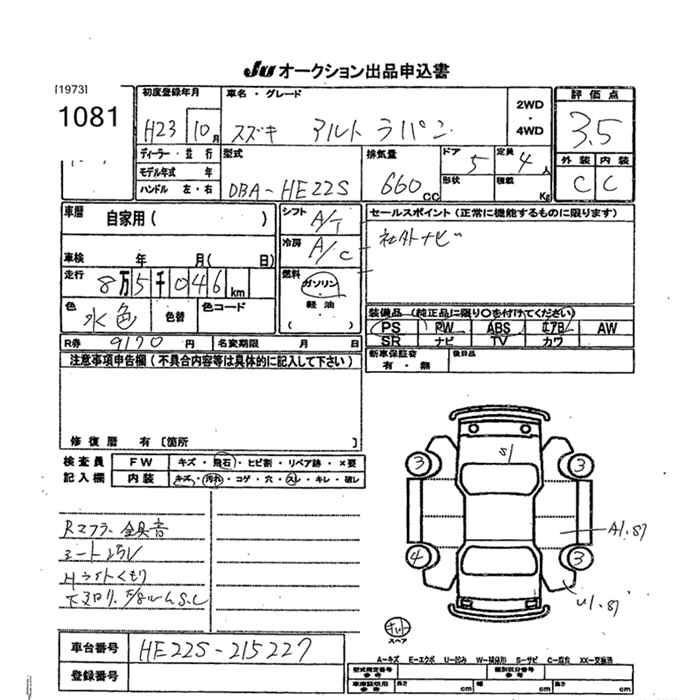 JU オークション出品申込書
[1973]
1081
初度登録年月
H23 10月
車名・グレード
スズキ アルト ラパン
2WD
・
4WD
評価点
3.5
外装 内装
C C
ディーラー・並行
モデル年式 年
ハンドル 左・右
型式
DBA-HE22S
排気量
660 CC
ドア 5
形状
定員 4 人
積載 Kg
車歴 自家用( )
シフト A/T
セールスポイント(正常に機能するものに限ります)
社外ナビ
車検 年 月( 日)
冷房 A/C
走行 8万5千046km
燃料 ガソリン
軽油
( )
色 水色 色替 色コード
装備品(純正品に限り○を付けてください)
PS PW ABS エアB AW
SR ナビ TV カワ
R券 9170円 名変期限 月 日
新車保証書 有・無
後日品
注意事項申告欄(不具合内容等は具体的に記入して下さい)
修復歴 有〔箇所 〕
検査員 FW キズ・飛石・ヒビ割・リペア跡・×要
記入欄 内装 キズ・汚れ・コゲ・穴・スレ・キレ・破レ
S1
3 3
A1.87
4 3
U1.87
Rマフラー
シート
Hライトくもり
S.C
スペア
車台番号 HE22S-215227
登録番号
A-キズ E-エクボ U-凹み W-補修跡 S-サビ C-腐食 XX-交換済
型式指定番号 参考
類別区分番号 参考
車庫証明用 参考 長さ cm 幅 cm 高さ cm